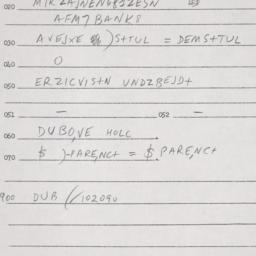 020
AFMTBANK8
030 AVEJXE )S+TUL = DEMS+TUL
040 O
050 ERZICVIS+N UNDZBEJD+
051 — 052 —
060 DUBO,VE HOLC
070 $ )-PARE,NC+ = $ PARE,NC+
900 DUB //102090